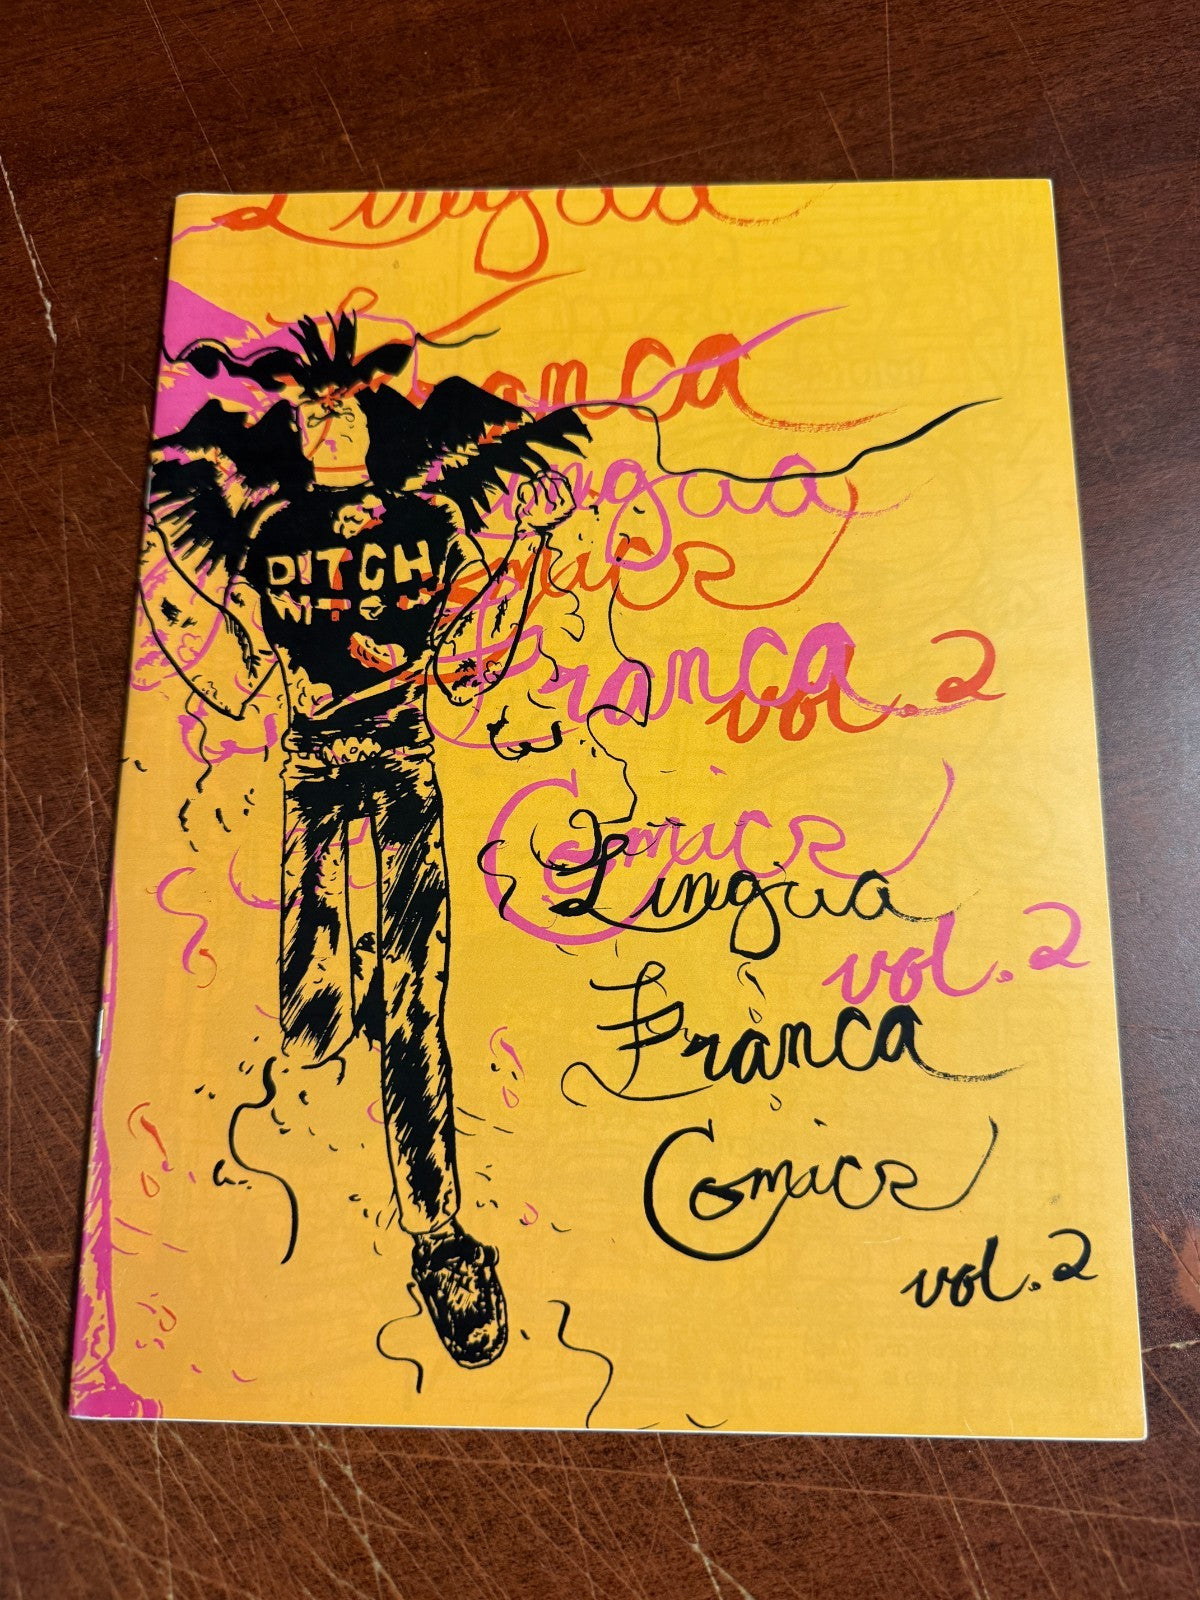 Lingua
Franca
Lingua
Comics
Franca
vol. 2
Comics
vol. 2
DITCH
WITCH
Lingua
Franca
Comics
vol. 2